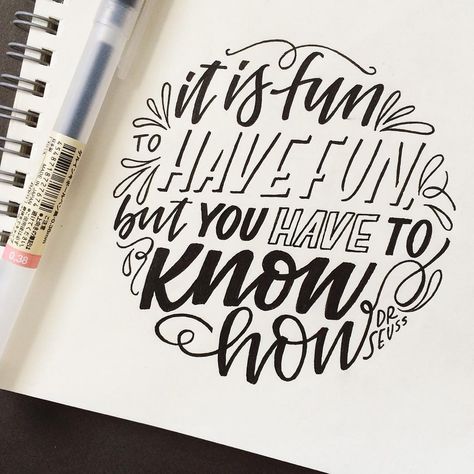 it is fun
TO HAVE FUN,
but YOU HAVE TO
KNOW
how
DR
SEUSS
0.38